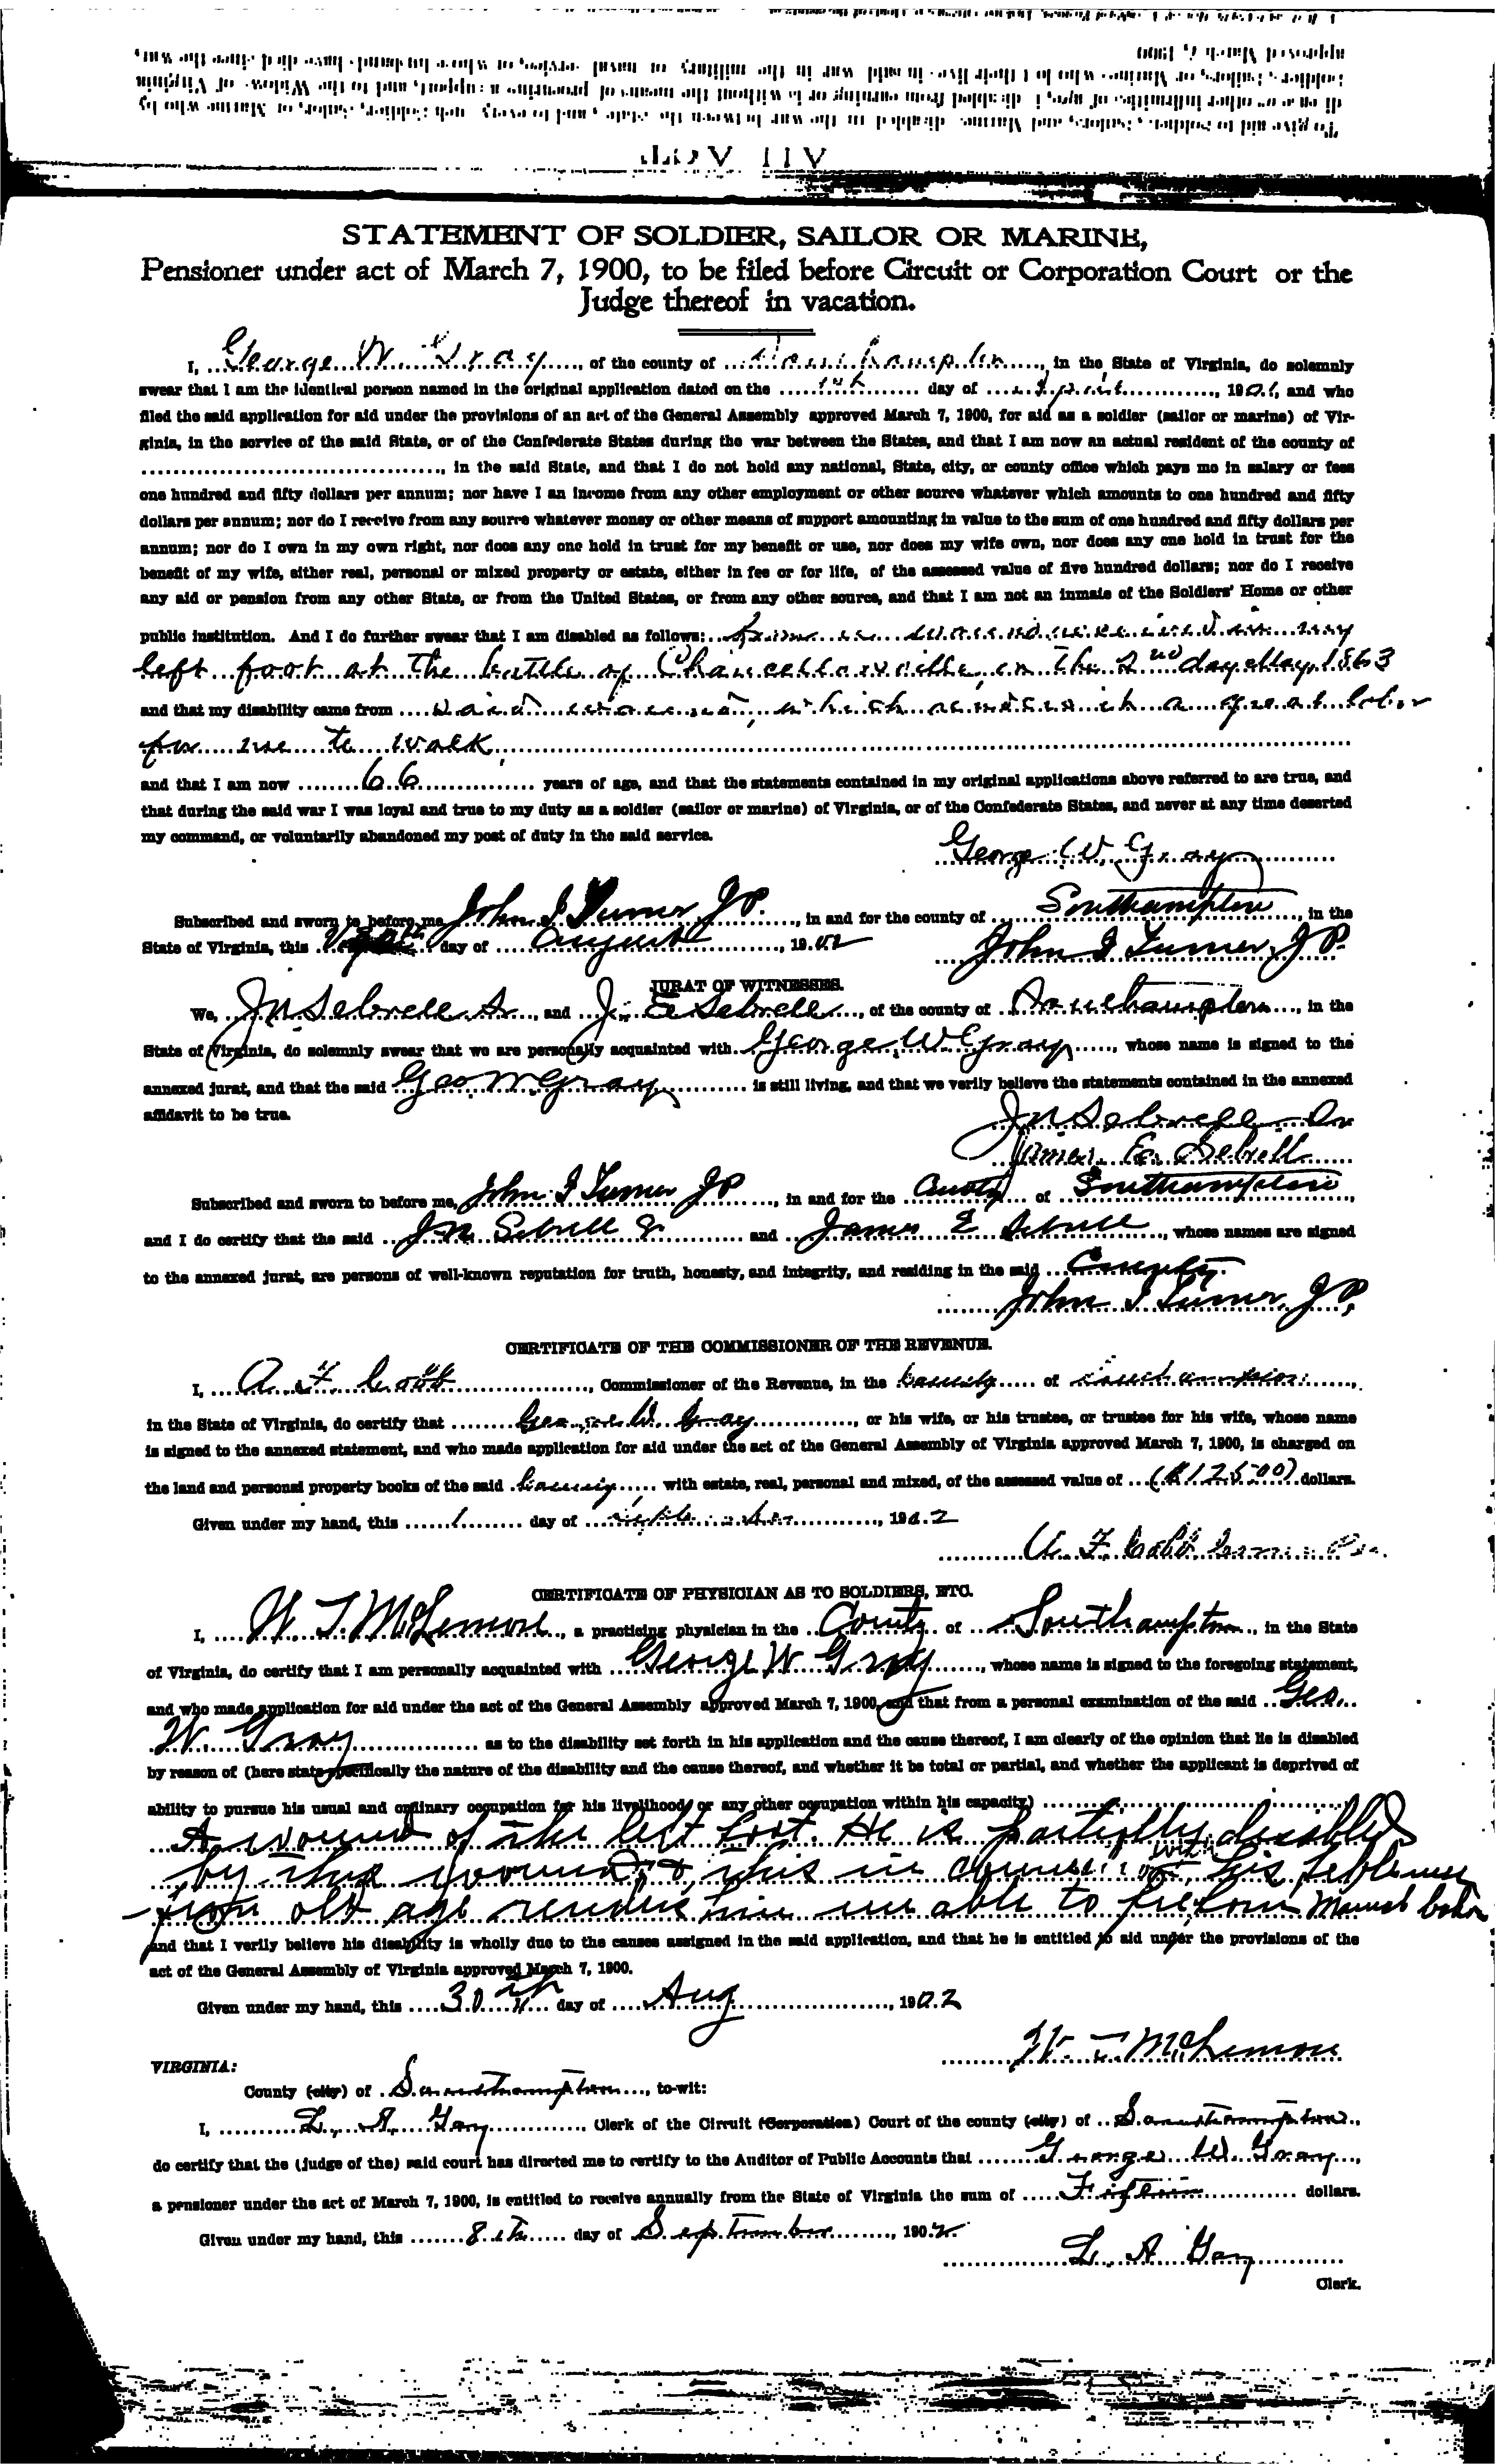 AN ACT.
To give aid to soldiers, sailors, and Marines disabled in the war between the states, and to every such soldier, sailor, or Marine who by
approved March 7, 1900
STATEMENT OF SOLDIER, SAILOR OR MARINE,
Pensioner under act of March 7, 1900, to be filed before Circuit or Corporation Court or the
Judge thereof in vacation.
I, George W. Gray, of the county of Southampton, in the State of Virginia, do solemnly
swear that I am the identical person named in the original application dated on the day of April, 190, and who
filed the said application for aid under the provisions of an act of the General Assembly approved March 7, 1900, for aid as a soldier (sailor or marine) of Vir-
ginia, in the service of the said State, or of the Confederate States during the war between the States, and that I am now an actual resident of the county of
, in the said State, and that I do not hold any national, State, city, or county office which pays me in salary or fees
one hundred and fifty dollars per annum; nor have I an income from any other employment or other source whatever which amounts to one hundred and fifty
dollars per annum; nor do I receive from any source whatever money or other means of support amounting in value to the sum of one hundred and fifty dollars per
annum; nor do I own in my own right, nor does any one hold in trust for my benefit or use, nor does my wife own, nor does any one hold in trust for the
benefit of my wife, either real, personal or mixed property or estate, either in fee or for life, of the assessed value of five hundred dollars; nor do I receive
any aid or pension from any other State, or from the United States, or from any other source, and that I am not an inmate of the Soldiers' Home or other
public institution. And I do further swear that I am disabled as follows: From a wound received in my
left foot at the battle of Chancellorsville, on the 2nd day of May, 1863
and that my disability came from said wound, which makes it a great labor
for me to walk
and that I am now 66 years of age, and that the statements contained in my original applications above referred to are true, and
that during the said war I was loyal and true to my duty as a soldier (sailor or marine) of Virginia, or of the Confederate States, and never at any time deserted
my command, or voluntarily abandoned my post of duty in the said service.
George W. Gray
Subscribed and sworn to before me John I Turner J P., in and for the county of Southampton, in the
State of Virginia, this day of August, 1902
John I Turner, J P.
JURAT OF WITNESSES.
We, J N Sebrell Sr, and J. E Sebrell, of the county of Southampton, in the
State of Virginia, do solemnly swear that we are personally acquainted with George W Gray, whose name is signed to the
annexed jurat, and that the said Geo W Gray is still living, and that we verily believe the statements contained in the annexed
affidavit to be true.
J N Sebrell Sr
James E. Sebrell
Subscribed and sworn to before me, John I Turner J P, in and for the County of Southampton,
and I do certify that the said J N Sebrell Sr and James E Sebrell, whose names are signed
to the annexed jurat, are persons of well-known reputation for truth, honesty, and integrity, and residing in the said County.
John I Turner, J P.
CERTIFICATE OF THE COMMISSIONER OF THE REVENUE.
I, A. F. Cobb, Commissioner of the Revenue, in the County of Southampton,
in the State of Virginia, do certify that George W. Gray, or his wife, or his trustee, or trustee for his wife, whose name
is signed to the annexed statement, and who made application for aid under the act of the General Assembly of Virginia approved March 7, 1900, is charged on
the land and personal property books of the said County, with estate, real, personal and mixed, of the assessed value of ($125 00) dollars.
Given under my hand, this 1 day of September, 1902
A. F. Cobb
CERTIFICATE OF PHYSICIAN AS TO SOLDIERS, ETC.
I, W. T. McLemore, a practicing physician in the County of Southampton, in the State
of Virginia, do certify that I am personally acquainted with George W Gray, whose name is signed to the foregoing statement,
and who made application for aid under the act of the General Assembly approved March 7, 1900, and that from a personal examination of the said Geo.
W. Gray as to the disability set forth in his application and the cause thereof, I am clearly of the opinion that he is disabled
by reason of (here state specifically the nature of the disability and the cause thereof, and whether it be total or partial, and whether the applicant is deprived of
ability to pursue his usual and ordinary occupation for his livelihood, or any other occupation within his capacity)
A wound of the left foot. He is partially disabled
by this wound, & this in with his feebleness
from old age renders him unable to perform manual labor
and that I verily believe his disability is wholly due to the causes assigned in the said application, and that he is entitled to aid under the provisions of the
act of the General Assembly of Virginia approved March 7, 1900.
Given under my hand, this 30th day of Aug, 1902
W. T. McLemore
VIRGINIA:
County (city) of Southampton, to-wit:
I, L. A. Gay, Clerk of the Circuit (Corporation) Court of the county (city) of Southampton,
do certify that the (judge of the) said court has directed me to certify to the Auditor of Public Accounts that George W. Gray,
a pensioner under the act of March 7, 1900, is entitled to receive annually from the State of Virginia the sum of Fifteen dollars.
Given under my hand, this 8th day of September, 1902.
L. A Gay
Clerk.